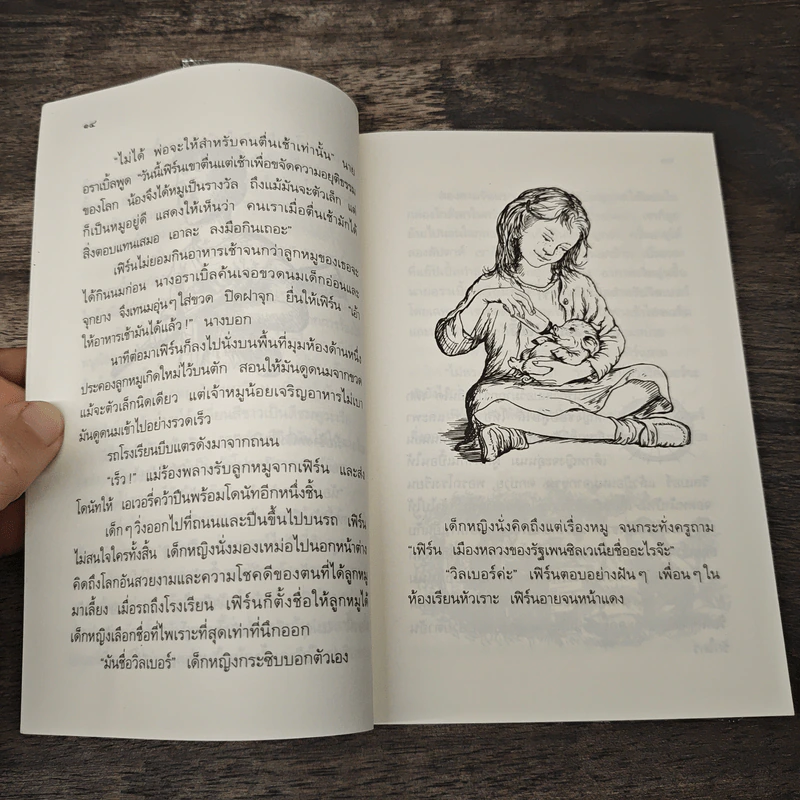 ๑๔
"ไม่ได้ พ่อจะให้สำหรับคนตื่นเช้าเท่านั้น" นาย
อราเบิ้ลพูด "วันนี้เฟิร์นเขาตื่นแต่เช้าเพื่อขจัดความอยุติธรรม
ของโลก น้องจึงได้หมูเป็นรางวัล ถึงแม้มันจะตัวเล็ก แต่
ก็เป็นหมูอยู่ดี แสดงให้เห็นว่า คนเราเมื่อตื่นเช้ามักได้
สิ่งตอบแทนเสมอ เอาละ ลงมือกินเถอะ"
เฟิร์นไม่ยอมกินอาหารเช้าจนกว่าลูกหมูของเธอจะ
ได้กินนมก่อน นางอราเบิ้ลค้นเจอขวดนมเด็กอ่อนและ
จุกยาง จึงเทนมอุ่นๆ ใส่ขวด ปิดฝาจุก ยื่นให้เฟิร์น "เอ้า
ให้อาหารเช้ามันได้แล้ว!" นางบอก
นาทีต่อมาเฟิร์นก็ลงไปนั่งบนพื้นที่มุมห้องด้านหนึ่ง
ประคองลูกหมูเกิดใหม่ไว้บนตัก สอนให้มันดูดนมจากขวด
แม้จะตัวเล็กนิดเดียว แต่เจ้าหมูน้อยเจริญอาหารไม่เบา
มันดูดนมเข้าไปอย่างรวดเร็ว
รถโรงเรียนบีบแตรดังมาจากถนน
"เร็ว!" แม่ร้องพลางรับลูกหมูจากเฟิร์น และส่ง
โดนัทให้ เอเวอรี่คว้าปืนพร้อมโดนัทอีกหนึ่งชิ้น
เด็กๆ วิ่งออกไปที่ถนนและปีนขึ้นไปบนรถ เฟิร์น
ไม่สนใจใครทั้งสิ้น เด็กหญิงนั่งมองเหม่อไปนอกหน้าต่าง
คิดถึงโลกอันสวยงามและความโชคดีของตนที่ได้ลูกหมู
มาเลี้ยง เมื่อรถถึงโรงเรียน เฟิร์นก็ตั้งชื่อให้ลูกหมูได้
เด็กหญิงเลือกชื่อที่ไพเราะที่สุดเท่าที่นึกออก
"มันชื่อวิลเบอร์" เด็กหญิงกระซิบบอกตัวเอง
เด็กหญิงนั่งคิดถึงแต่เรื่องหมู จนกระทั่งครูถาม
"เฟิร์น เมืองหลวงของรัฐเพนซิลเวเนียชื่ออะไรจ๊ะ"
"วิลเบอร์ค่ะ" เฟิร์นตอบอย่างฝันๆ เพื่อนๆ ใน
ห้องเรียนหัวเราะ เฟิร์นอายจนหน้าแดง